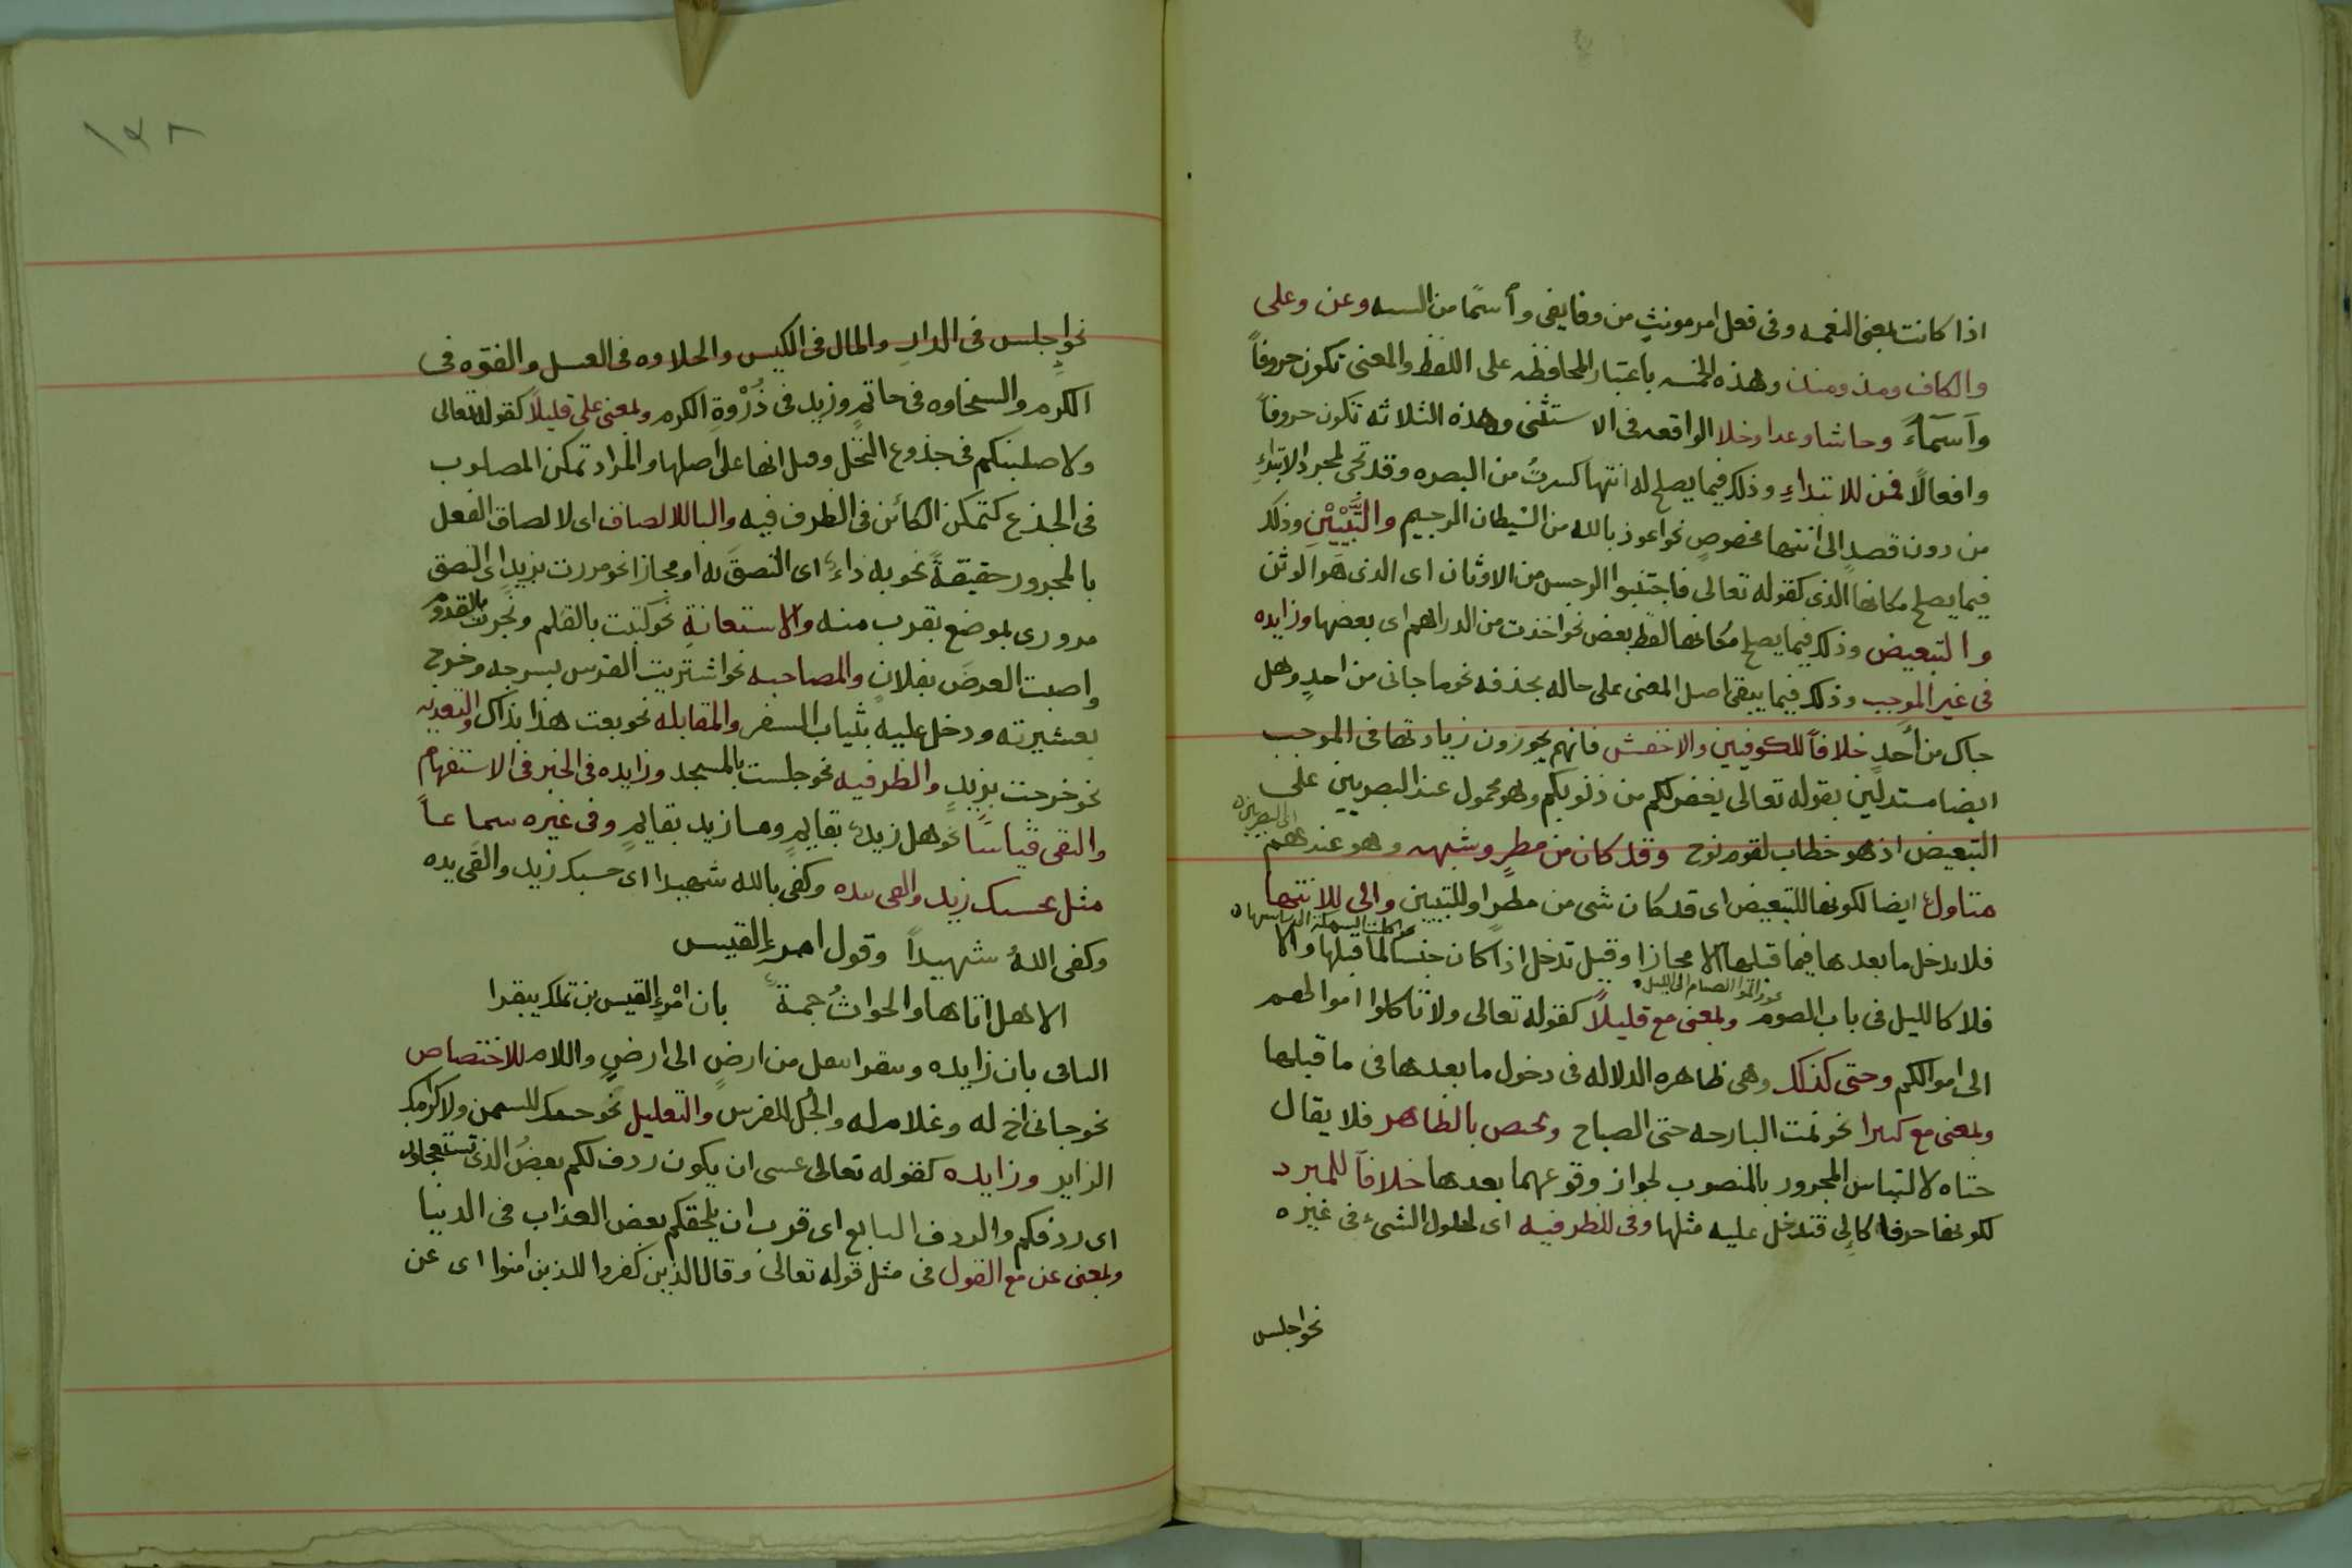 اذا كانت بمعنى النعمه وفى فعل امر مونثٍ من وفا يفى وأسمًا من السه وعن وعلى
والكاف ومذ ومنذ وهذه الخمسه باعتبار المحافظه على اللفظ والمعنى تكون حروفاً
وآسمآءً وحاشا وعدا وخلا الواقعه فى الاستثنى وهذه الثلاثه تكون حروفاً
وافعالًا فمن للابتداءِ وذلك فيما يصلح له انتها كسرتُ من البصره وقد تجى لمجرد الابتداءِ
من دون قصدٍ الى انتها مخصوصٍ نحو اعوذ بالله من الشيطان الرجيم والتَّبْيِيْنِ وذلك
فيما يصلح مكانها الذى كقوله تعالى فاجتنبوا الرجس من الاوثان اى الذى هو الوثن
والتبعيض وذلك فيما يصلح مكانها لفظ بعض نحو اخذت من الدراهم اى بعضها وزايده
فى غير الموجب وذلك فيما يبقى اصل المعنى على حاله بحذفه نحو ما جانى من احدٍ وهل
جاك من أحدٍ خلافاً للكوفيين والاخفش فانهم يجوزون زيادتها فى الموجب
ايضا مستدلين بقوله تعالى يغفر لكم من ذنوبكم وهو محمول عند البصريين على
التبعيض اذ هو خطاب لقوم نوح وقد كان من مطرٍ وشبهه وهو عندهم
اى البصريين
متاول ايضا لكونها للتبعيض اى قد كان شى من مطرٍ او للتبيين والى للانتها
فلا يدخل ما بعدها فيما قبلها الا مجازا وقيل تدخل اذا كان جنسا لما قبلها والا
نحو اكلت السمكة الى راسها
فلا كالليل فى باب الصوم وبمعنى مع قليلًا كقوله تعالى ولا تاكلوا اموالهم
نحو اتموا الصيام الى الليل
الى اموالكم وحتى كذلك وهى ظاهره الدلاله فى دخول ما بعدها فى ما قبلها
وبمعنى مع كثيرا نحو نمت البارحه حتى الصباح ويختص بالظاهر فلا يقال
حتاه لالتباس المجرور بالمنصوب لجواز وقوعهما بعدها خلافاً للمبرد
لكونها حرفا كالى فتدخل عليه مثلها وفى للظرفيه اى لحلول الشىء فى غيره
نحو اجلس
١٣٨
نحو اجلس فى الدار والمال فى الكيس والحلاوه فى العسل والفتوه فى
الكرم والسخاوه فى حاتمٍ وزيد فى ذُرْوةِ الكرم وبمعنى على قليلًا كقوله تعالى
ولاصلبنكم فى جذوع النخل وقيل انها على اصلها والمراد تمكن المصلوب
فى الجذع كتمكن الكائن فى الظرف فيه والبا للالصاق اى لالصاق الفعل
بالمجرور حقيقةً نحو به داءٌ اى التصقَ به او مجازا نحو مررت بزيدٍ اى التصق
مرورى بموضع يقرب منه والاستعانةِ نحو كتبت بالقلم ونجرت بالقدوم
واصبت العرضَ بفلانٍ والمصاحبه نحو اشتريت الفرس بسرجه وخرج
بعشيرته ودخل عليه بثياب السفر والمقابله نحو بعت هذا بذاك والتعديه
نحو خرجت بزيدٍ والظرفيه نحو جلست بالمسجد وزايده فى الخبر فى الاستفهام
والنفى قياسًا نحو هل زيدٌ بقايمٍ وما زيد بقايمٍ وفى غيره سماعاً
مثل بحسبك زيد والقى بيده وكفى بالله شهيدا اى حسبك زيد والقى يده
وكفى اللهُ شهيداً وقول امرءِ القيس
الا هل اتاها والحوادثُ جمةٌ بان امْرءِ القيس بن تملك بيقرا
البا فى بان زايده وبيقرا انتقل من ارضٍ الى ارضٍ واللام للاختصاص
نحو جانى اخ له وغلام له والجُل للفرس والتعليل نحو جيتك للسمن ولاكرامك
الزاير وزايده كقوله تعالى عسى ان يكون ردف لكم بعضُ الذى تستعجلون
اى ردفكم والردف التابع اى قرب ان يلحقكم بعض العذاب فى الدنيا
وبمعنى عن مع القول فى مثل قوله تعالى وقال الذين كفروا للذين امنوا اى عن